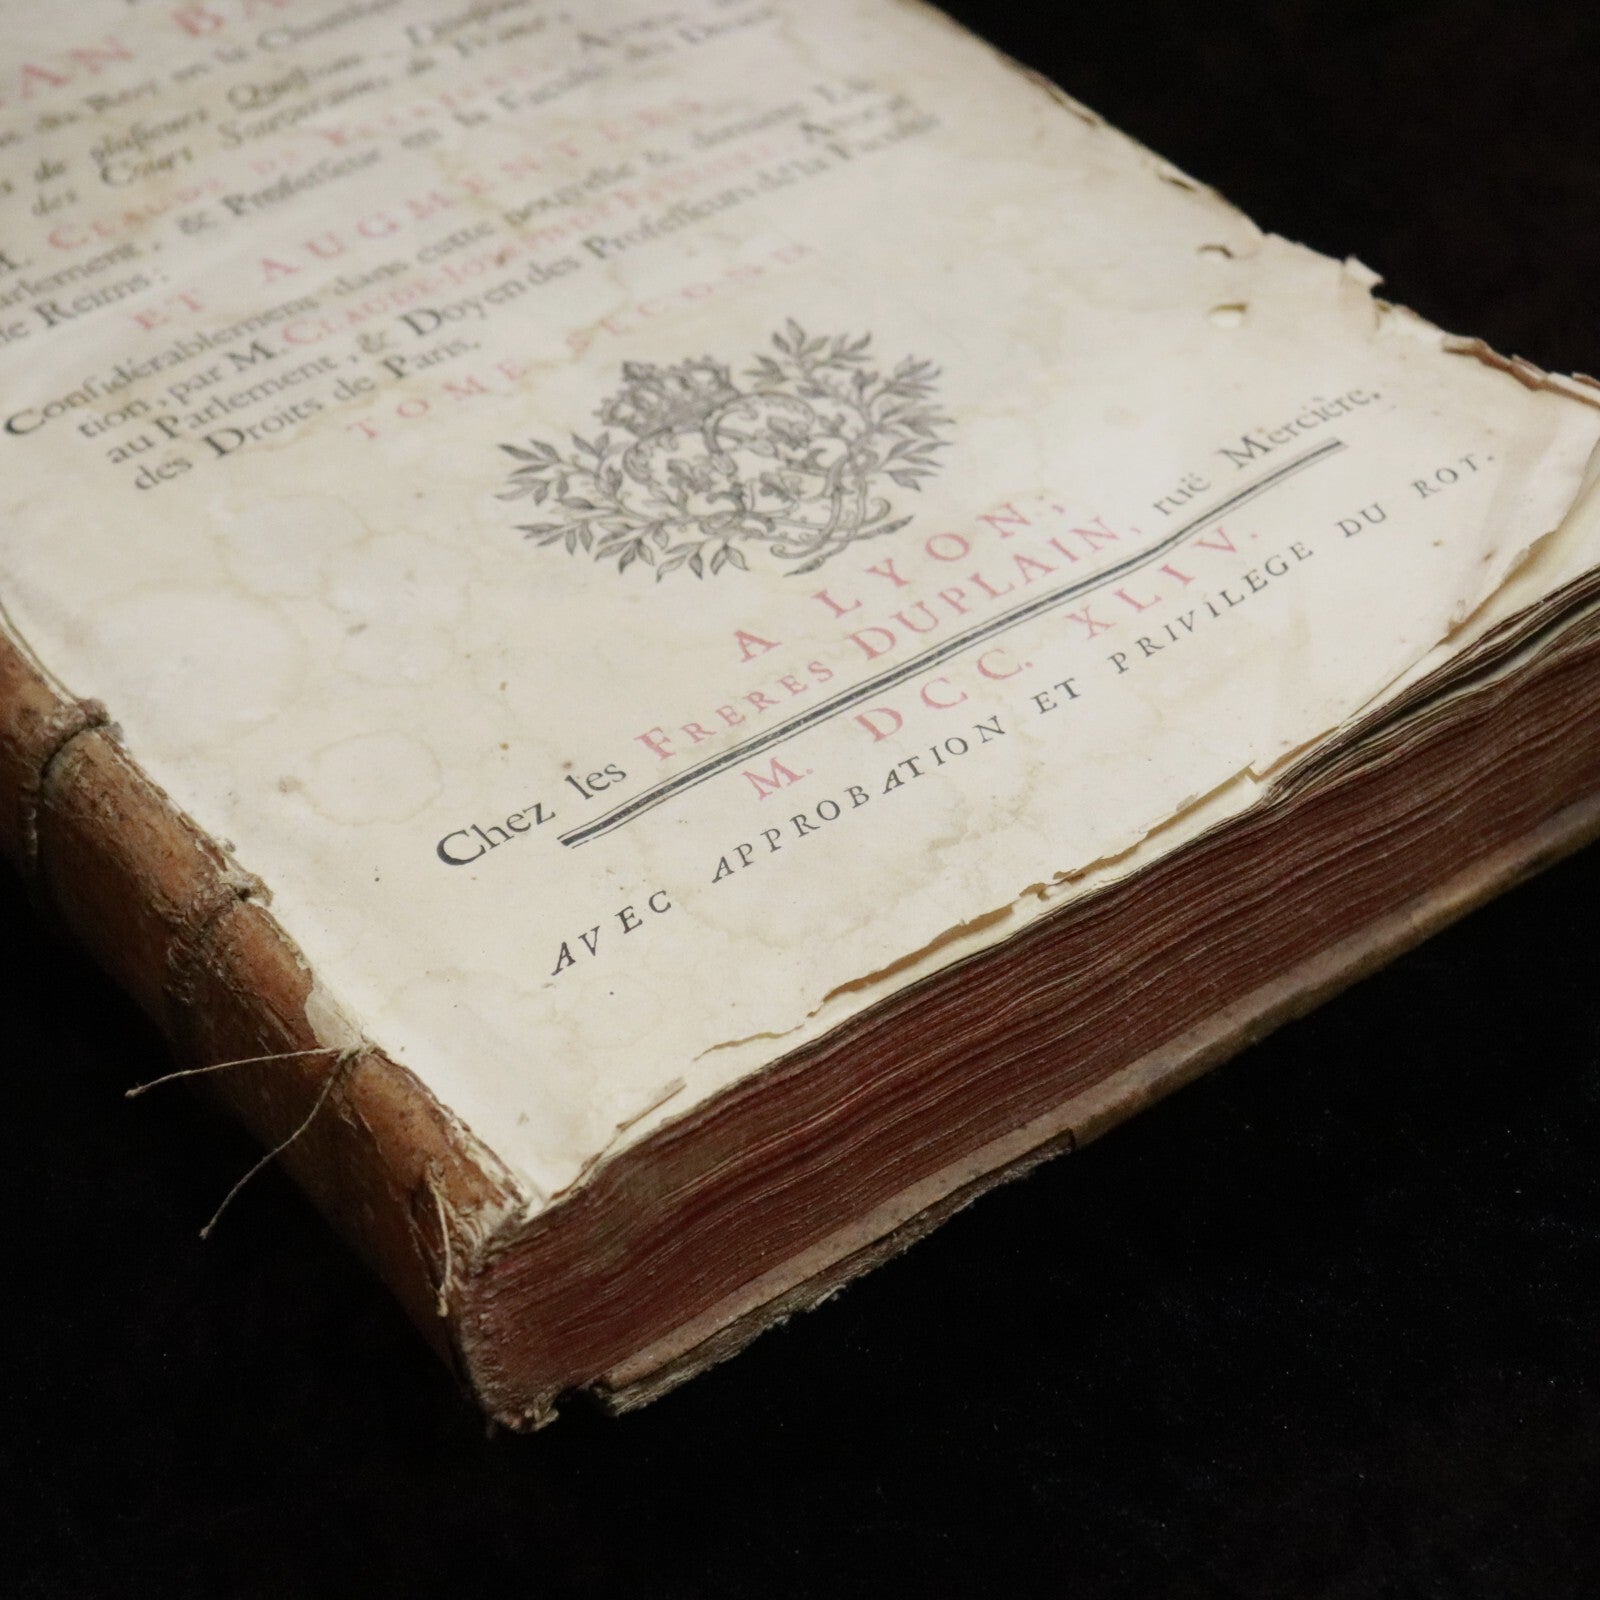 AN BA
du Roy en la Chambre
de plusieurs Questions,
des Cours Souveraines de France,
M. CLAUDE DE FERRIERE,
Parlement, & Professeur en la Faculté des Droits
de Reims:
ET AUGMENTÉES
Considérablement dans cette nouvelle & derniere
tion, par M. CLAUDE-JOSEPH DE FERRIERE,
au Parlement, & Doyen des Professeurs de la Faculté
des Droits de Paris.
TOME SECOND
A LYON,
Chez les FRERES DUPLAIN, ruë Mercière.
M. DCC. XLIV.
AVEC APPROBATION ET PRIVILEGE DU ROI.